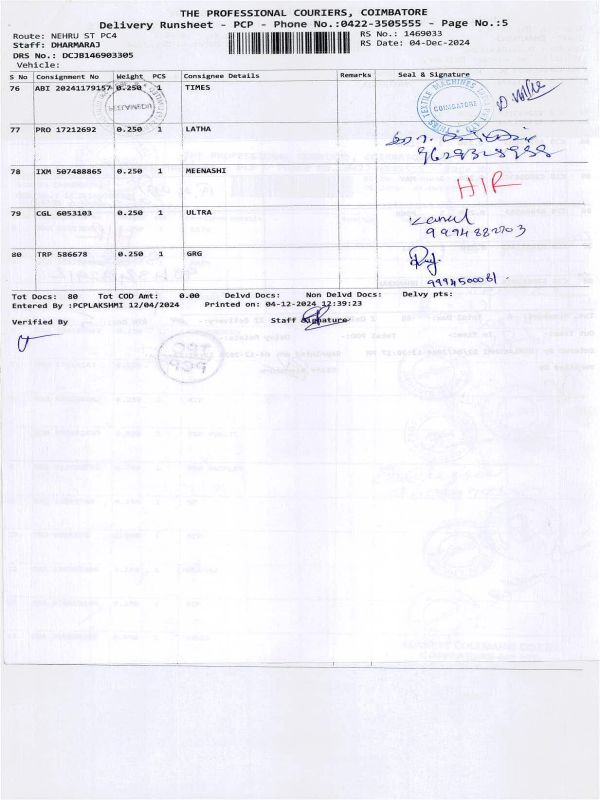 THE PROFESSIONAL COURIERS, COIMBATORE
Delivery Runsheet - PCP - Phone No.:0422-3505555 - Page No.:5
Route: NEHRU ST PC4 RS No.: 1469033
Staff: DHARMARAJ RS Date: 04-Dec-2024
DRS No.: DCJB146903305
Vehicle:
S No Consignment No Weight PCS Consignee Details Remarks Seal & Signature
76 ABI 20241179157 0.250 1 TIMES
COIMBATORE
77 PRO 17212692 0.250 1 LATHA
78 IXM 507488865 0.250 1 MEENASHI HIR
79 CGL 6053103 0.250 1 ULTRA
9994882703
80 TRP 586678 0.250 1 GRG
Tot Docs: 80 Tot COD Amt: 0.00 Delvd Docs: Non Delvd Docs: Delvy pts:
Entered By :PCPLAKSHMI 12/04/2024 Printed on: 04-12-2024 12:39:23
Verified By Staff Signature